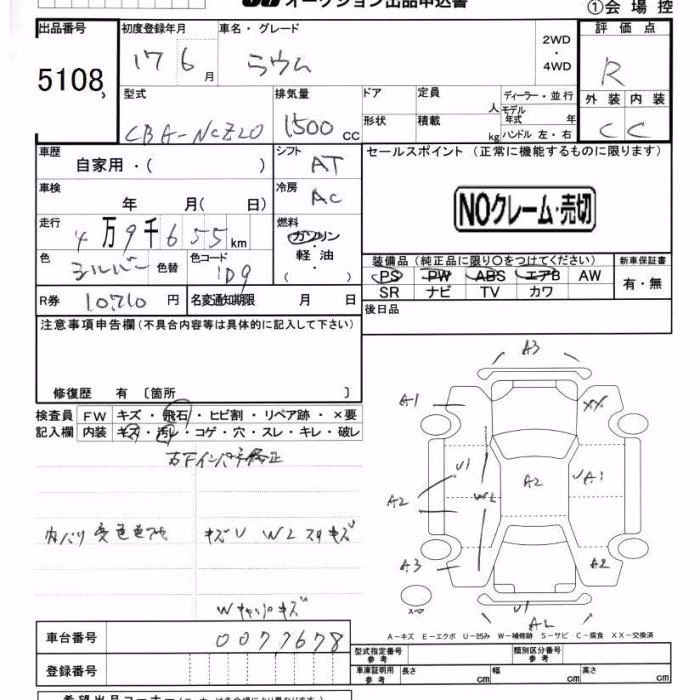 オークション出品申込書
①会場控
出品番号 初度登録年月 車名・グレード 2WD ・ 4WD 評価点
5108 17 6月 ラウム R
型式 排気量 ドア 定員 人 ディーラー・並行 外装 内装
CBA-NCZ20 1500cc 形状 積載 kg モデル年式 年 ハンドル 左・右 C C
車歴 自家用・( ) シフト AT セールスポイント (正常に機能するものに限ります)
車検 年 月( 日) 冷房 AC
NOクレーム・売切
走行 4万9千655km 燃料 ガソリン・軽油・( )
色 シルバー 色替 色コード 1D9
装備品 (純正品に限り○をつけてください) 新車保証書
PS PW ABS エアB AW 有・無
SR ナビ TV カワ
R券 10710円 名変通知期限 月 日
後日品
注意事項申告欄(不具合内容等は具体的に記入して下さい)
修復歴 有 〔箇所 〕
検査員 FW キズ・飛石・ヒビ割・リペア跡・×要
記入欄 内装 キズ・汚レ・コゲ・穴・スレ・キレ・破レ
右Fインパネ修正
キズU W2 スリキズ
Wキャッパキズ
A3
A1 XX
U1 A2 A1
A2 W2
A3 A2
スペア U1
A-キズ E-エクボ U-凹み W-補修跡 S-サビ C-腐食 XX-交換済
車台番号 0077678
登録番号
型式指定番号 参考 類別区分番号 参考
車庫証明用 参考 長さ cm 幅 cm 高さ cm
希望出品コーナー